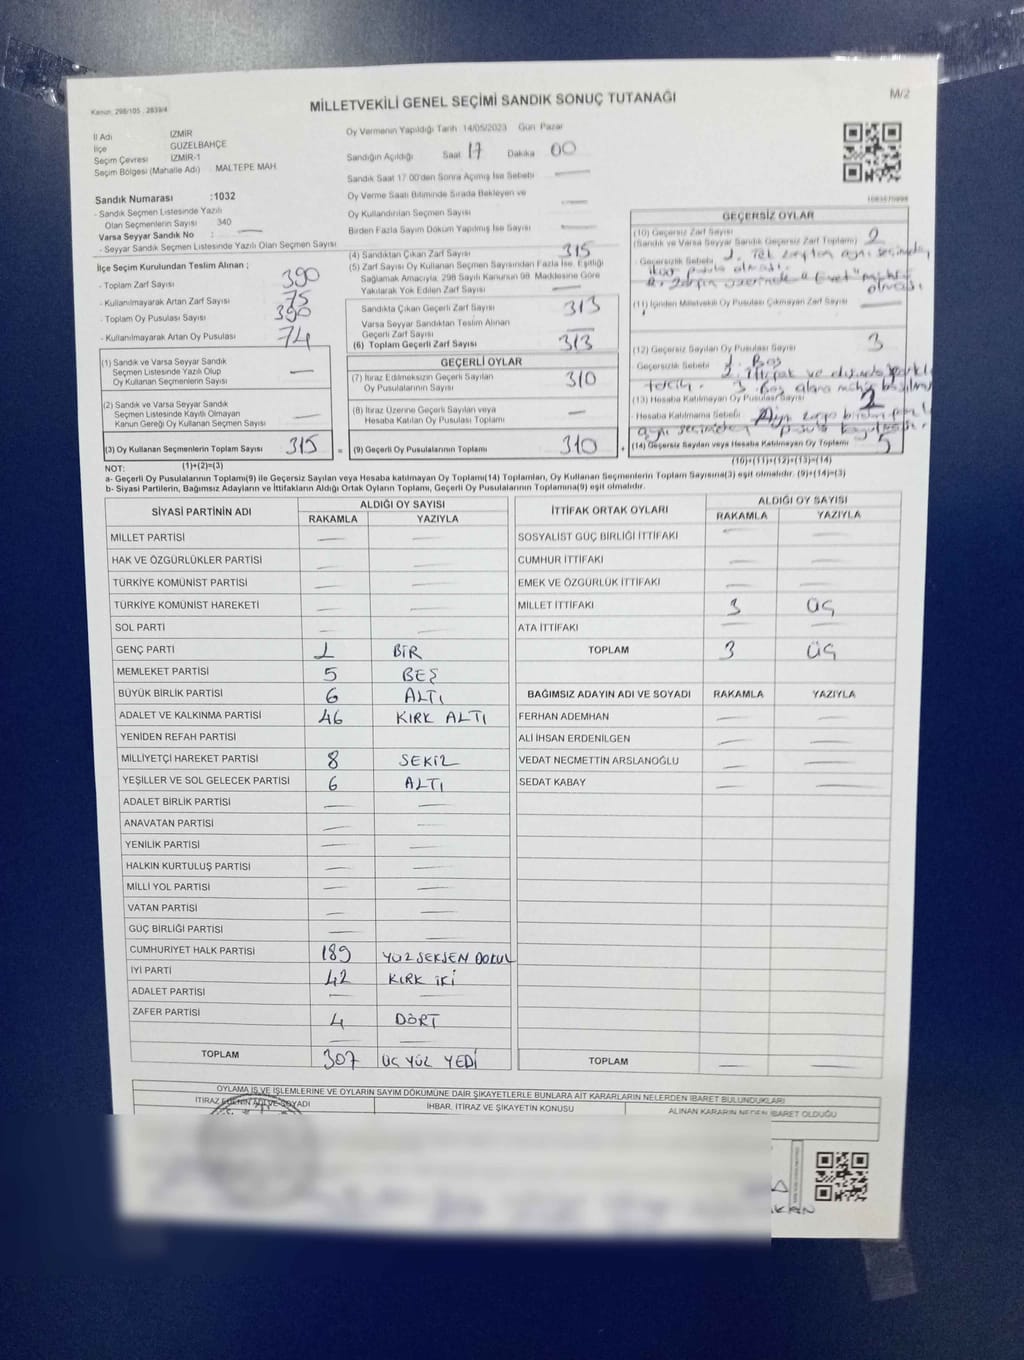 Kanun: 298/105 , 2839/4
MİLLETVEKİLİ GENEL SEÇİMİ SANDIK SONUÇ TUTANAĞI
M/2
İl Adı İZMİR
İlçe GÜZELBAHÇE
Seçim Çevresi İZMİR-1
Seçim Bölgesi (Mahalle Adı) : MALTEPE MAH
Sandık Numarası :1032
- Sandık Seçmen Listesinde Yazılı
Olan Seçmenlerin Sayısı 340
Varsa Seyyar Sandık No :
- Seyyar Sandık Seçmen Listesinde Yazılı Olan Seçmen Sayısı
İlçe Seçim Kurulundan Teslim Alınan ;
- Toplam Zarf Sayısı 390
- Kullanılmayarak Artan Zarf Sayısı 75
- Toplam Oy Pusulası Sayısı 390
- Kullanılmayarak Artan Oy Pusulası 74
(1) Sandık ve Varsa Seyyar Sandık
Seçmen Listesinde Yazılı Olup
Oy Kullanan Seçmenlerin Sayısı —
(2) Sandık ve Varsa Seyyar Sandık
Seçmen Listesinde Kayıtlı Olmayan
Kanun Gereği Oy Kullanan Seçmen Sayısı —
(3) Oy Kullanan Seçmenlerin Toplam Sayısı 315
(1)+(2)=(3)
Oy Vermenin Yapıldığı Tarih 14/05/2023 Gün Pazar
Sandığın Açıldığı Saat 17 Dakika 00
Sandık Saat 17 00'den Sonra Açılmış İse Sebebi —
Oy Verme Saati Bitiminde Sırada Bekleyen ve
Oy Kullandırılan Seçmen Sayısı —
Birden Fazla Sayım Döküm Yapılmış İse Sayısı —
(4) Sandıktan Çıkan Zarf Sayısı 315
(5) Zarf Sayısı Oy Kullanan Seçmen Sayısından Fazla İse, Eşitliği
Sağlamak Amacıyla, 298 Sayılı Kanunun 98. Maddesine Göre
Yakılarak Yok Edilen Zarf Sayısı —
Sandıkta Çıkan Geçerli Zarf Sayısı 313
Varsa Seyyar Sandıktan Teslim Alınan
Geçerli Zarf Sayısı —
(6) Toplam Geçerli Zarf Sayısı 313
GEÇERLİ OYLAR
(7) İtiraz Edilmeksizin Geçerli Sayılan
Oy Pusulalarının Sayısı 310
(8) İtiraz Üzerine Geçerli Sayılan veya
Hesaba Katılan Oy Pusulası Toplamı —
= (9) Geçerli Oy Pusulalarının Toplamı 310 +
GEÇERSİZ OYLAR
(10) Geçersiz Zarf Sayısı 2
(Sandık ve Varsa Seyyar Sandık Geçersiz Zarf Toplamı)
- Geçersizlik Sebebi 1. Tek zarftan aynı seçimden
olması.
(11) İçinden Milletvekili Oy Pusulası Çıkmayan Zarf Sayısı —
(12) Geçersiz Sayılan Oy Pusulası Sayısı 3
Geçersizlik Sebebi 1. Boş
2. İttifak ve dışında
3. Boş alana mühür
(13) Hesaba Katılmayan Oy Pusulası Sayısı 2
- Hesaba Katılmama Sebebi Aynı
aynı seçimden pusula
(14) Geçersiz Sayılan veya Hesaba Katılmayan Oy Toplamı 5
(10)+(11)+(12)+(13)=(14)
NOT:
a- Geçerli Oy Pusulalarının Toplamı(9) ile Geçersiz Sayılan veya Hesaba katılmayan Oy Toplamı(14) Toplamları, Oy Kullanan Seçmenlerin Toplam Sayısına(3) eşit olmalıdır. (9)+(14)=(3)
b- Siyasi Partilerin, Bağımsız Adayların ve İttifakların Aldığı Oyların Toplamı, Geçerli Oy Pusulalarının Toplamına(9) eşit olmalıdır.
SİYASİ PARTİNİN ADI ALDIĞI OY SAYISI
RAKAMLA YAZIYLA
MİLLET PARTİSİ — —
HAK VE ÖZGÜRLÜKLER PARTİSİ — —
TÜRKİYE KOMÜNİST PARTİSİ — —
TÜRKİYE KOMÜNİST HAREKETİ — —
SOL PARTİ — —
GENÇ PARTİ 1 BİR
MEMLEKET PARTİSİ 5 BEŞ
BÜYÜK BİRLİK PARTİSİ 6 ALTI
ADALET VE KALKINMA PARTİSİ 46 KIRK ALTI
YENİDEN REFAH PARTİSİ
MİLLİYETÇİ HAREKET PARTİSİ 8 SEKİZ
YEŞİLLER VE SOL GELECEK PARTİSİ 6 ALTI
ADALET BİRLİK PARTİSİ — —
ANAVATAN PARTİSİ — —
YENİLİK PARTİSİ — —
HALKIN KURTULUŞ PARTİSİ — —
MİLLİ YOL PARTİSİ — —
VATAN PARTİSİ — —
GÜÇ BİRLİĞİ PARTİSİ — —
CUMHURİYET HALK PARTİSİ 189 YÜZ SEKSEN DOKUZ
İYİ PARTİ 42 KIRK İKİ
ADALET PARTİSİ — —
ZAFER PARTİSİ 4 DÖRT
TOPLAM 307 ÜÇ YÜZ YEDİ
İTTİFAK ORTAK OYLARI ALDIĞI OY SAYISI
RAKAMLA YAZIYLA
SOSYALİST GÜÇ BİRLİĞİ İTTİFAKI — —
CUMHUR İTTİFAKI — —
EMEK VE ÖZGÜRLÜK İTTİFAKI — —
MİLLET İTTİFAKI 3 ÜÇ
ATA İTTİFAKI — —
TOPLAM 3 ÜÇ
BAĞIMSIZ ADAYIN ADI VE SOYADI RAKAMLA YAZIYLA
FERHAN ADEMHAN — —
ALİ İHSAN ERDENİLGEN — —
VEDAT NECMETTİN ARSLANOĞLU — —
SEDAT KABAY — —
TOPLAM — —
OYLAMA İŞ VE İŞLEMLERİNE VE OYLARIN SAYIM DÖKÜMÜNE DAİR ŞİKAYETLERLE BUNLARA AİT KARARLARIN NELERDEN İBARET BULUNDUKLARI
İTİRAZ EDENİN ADI VE SOYADI
İHBAR, İTİRAZ VE ŞİKAYETİN KONUSU
ALINAN KARARIN NEDEN İBARET OLDUĞU